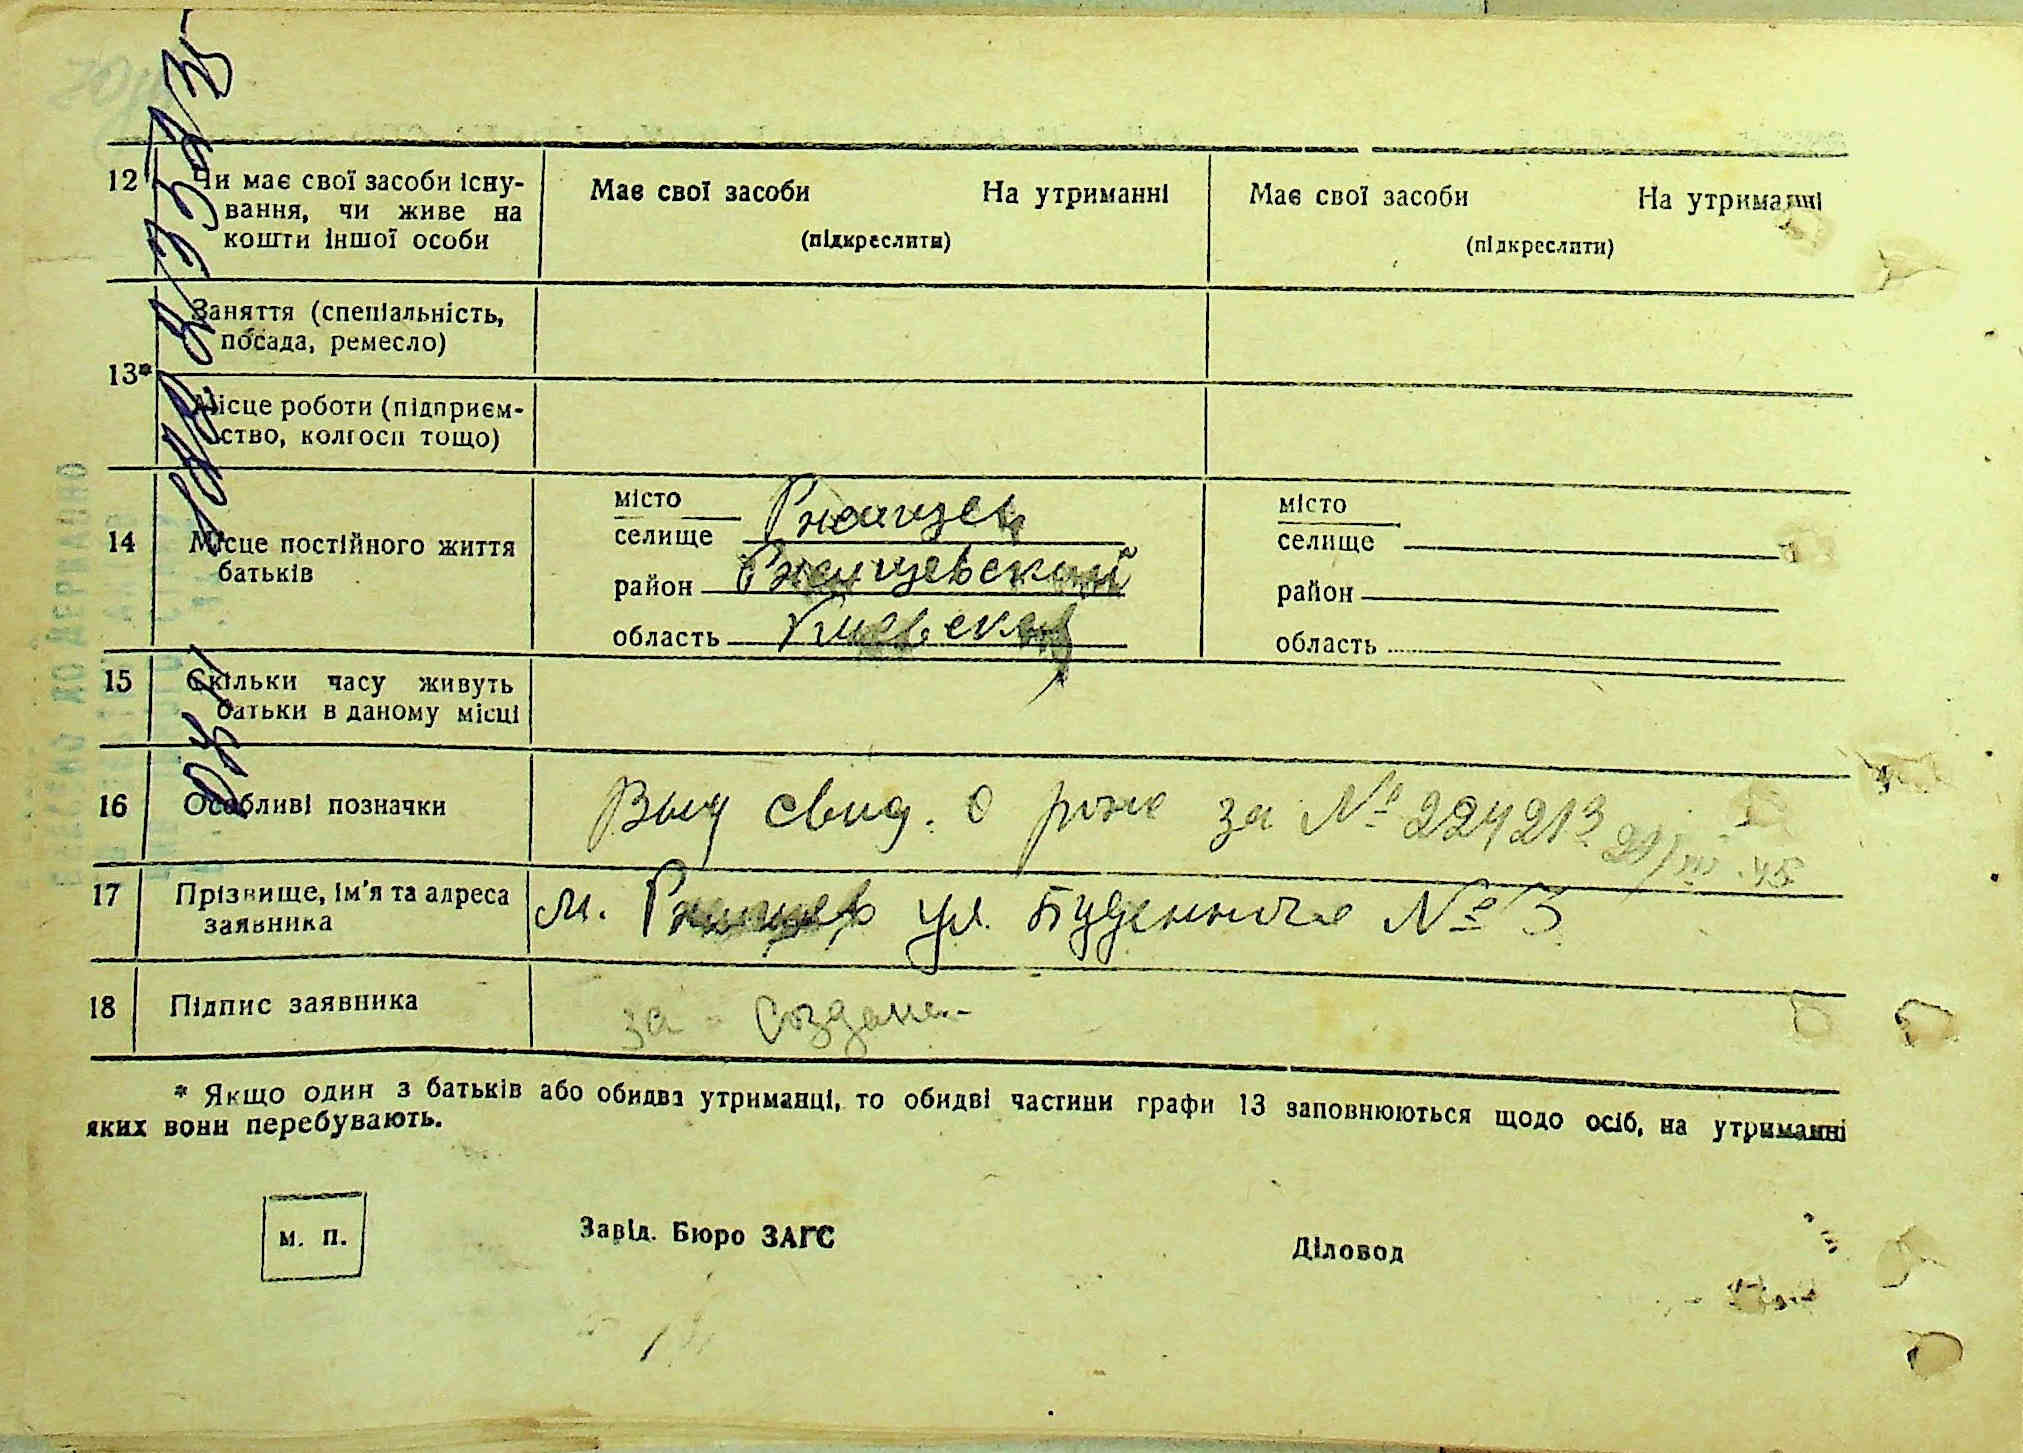 12 Чи має свої засоби існу-
вання, чи живе на
кошти іншої особи
Має свої засоби На утриманні
(підкреслити)
Має свої засоби На утриманні
(підкреслити)
13* Заняття (спеціальність,
посада, ремесло)
Місце роботи (підприєм-
ство, колгосп тощо)
14 Місце постійного життя
батьків
місто
селище Ржищев
район Ржищевский
область Киевская
місто
селище
район
область
15 Скільки часу живуть
батьки в даному місці
16 Особливі позначки
Выд свид. о рож за № 224213 29/III-45
17 Прізвище, ім'я та адреса
заявника
м. Ржищев ул. Буденного № 3
18 Підпис заявника
за -
* Якщо один з батьків або обидва утриманці, то обидві частини графи 13 заповнюються щодо осіб, на утриманні
яких вони перебувають.
м. п.
Завід. Бюро ЗАГС
Діловод